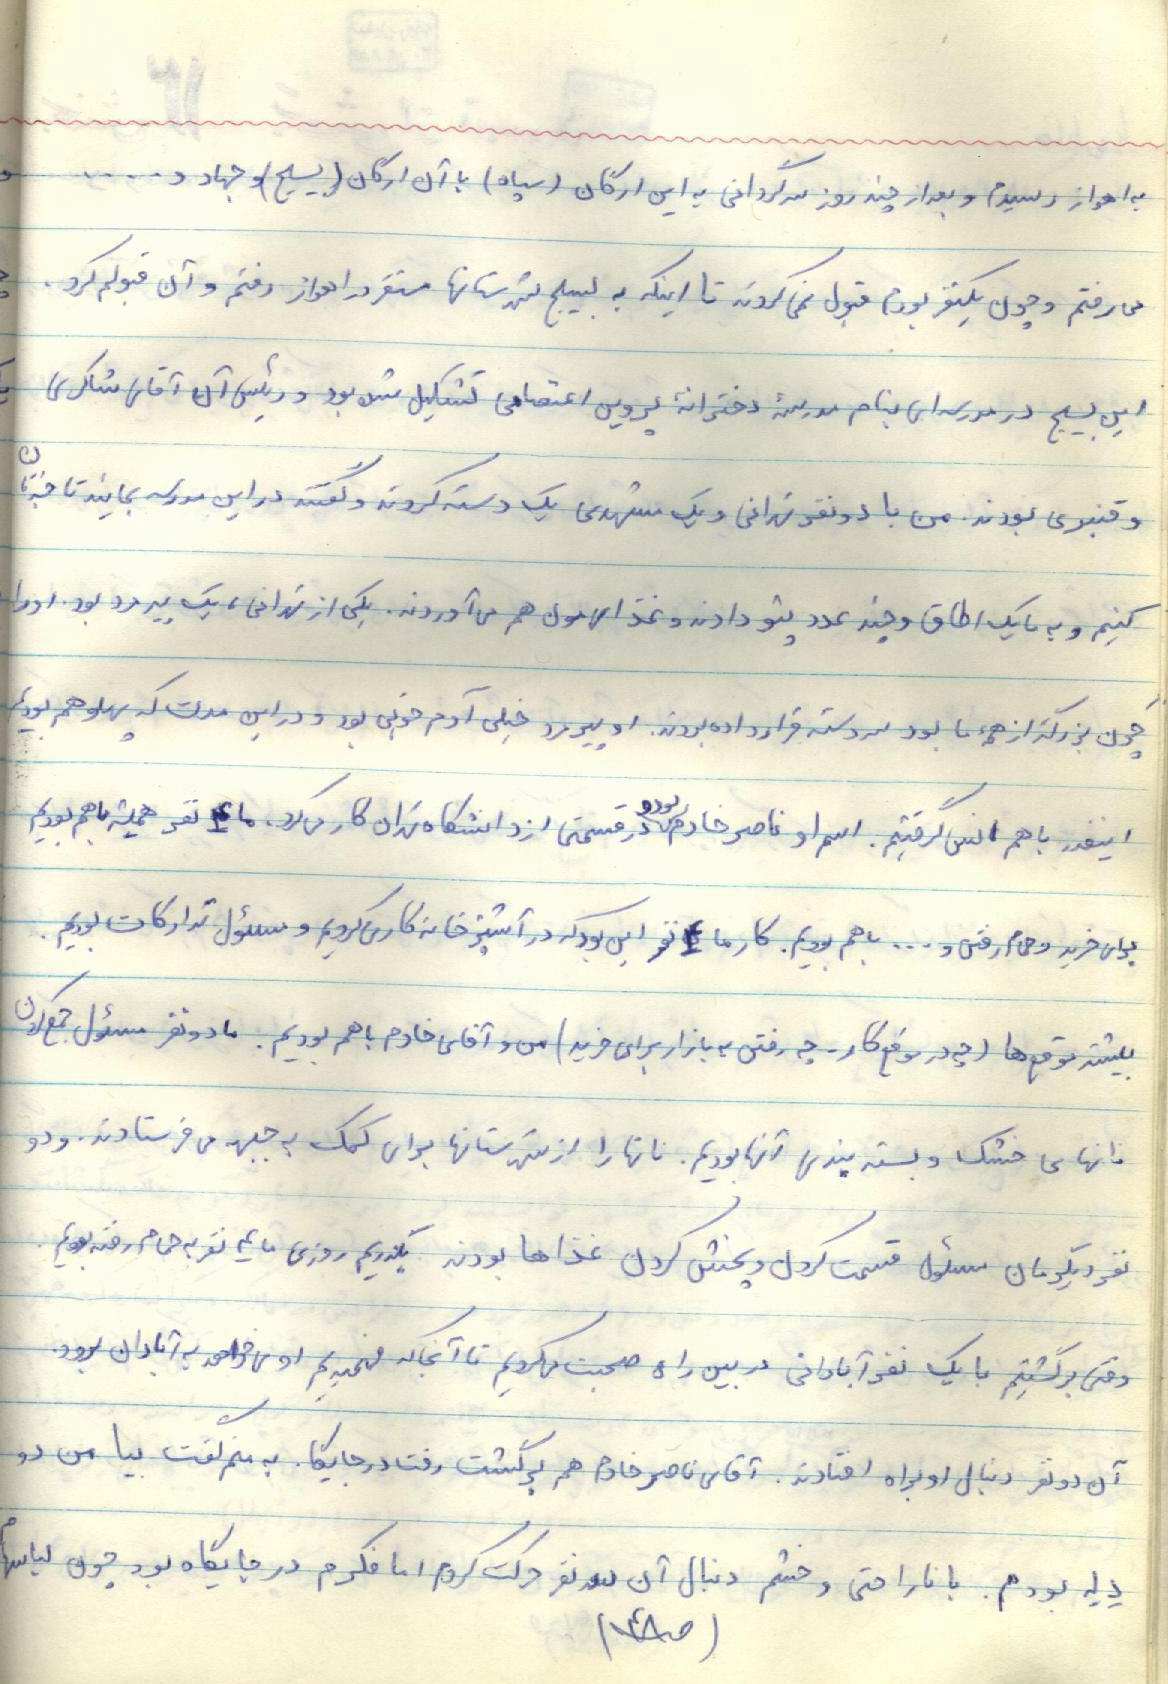 به اهواز رسیدم و بعد از چند روز سرگردانی به این ارگان (سپاه) یا آن ارگان (بسیج) و جهاد و .....
می رفتم و چون یکنفر بودم قبول نمی کردند تا اینکه به بسیج شهرستانها مستقر در اهواز رفتم و آن قبولم کرد.
این بسیج در مدرسه ای بنام مدرسهٔ دخترانهٔ پروین اعتصامی تشکیل شده بود و رئیس آن آقای شاکری
و قنبری بودند. من با دو نفر تهرانی و یک مشهدی یک دسته کردند و گفتند در این مدرسه بمانید تا خبرتان
کنیم و به ما یک اطاق و چند عدد پتو دادند و غذا بهمون هم می آوردند. یکی از تهرانی، یک پیرمرد بود. او را
چون بزرگتر از همهٔ ما بود سردسته قرار داده بودند. او پیرمرد خیلی آدم خوبی بود و در این مدت که پهلو هم بودیم
اینقدر با هم انس گرفتیم. اسم او ناصر خادم بود و در قسمتی از دانشگاه تهران کار می کرد. ما ۴ نفر همیشه باهم بودیم
برای خرید و حمام رفتن و .... باهم بودیم. کار ما ۴ نفر این بود که در آشپزخانه کار می کردیم و مسئول تدارکات بودیم.
بیشتر موقع ها (چه در موقع کار - چه رفتن به بازار برای خرید) من و آقای خادم باهم بودیم. ما دو نفر مسئول جمع کردن
نانهای خشک و بسته بندی آنها بودیم. نانها را از شهرستانها برای کمک به جبهه می فرستادند. و دو
نفر دیگرمان مسئول قسمت کردن و پخش کردن غذاها بودند بگذریم روزی ما ۴ نفر به حمام رفته بودیم.
وقتی برگشتیم با یک نفر آبادانی در بین راه صحبت میکردیم تا آنجا که فهمیدیم او می خواهد به آبادان برود.
آن دو نفر دنبال او براه افتادند. آقای ناصر خادم هم برگشت رفت در جایگا. به منم گفت بیا من دو
دله بودم. با ناراحتی و خشم دنبال آن سه نفر حرکت کردم اما فکرم در جایگاه بود چون لباسهام